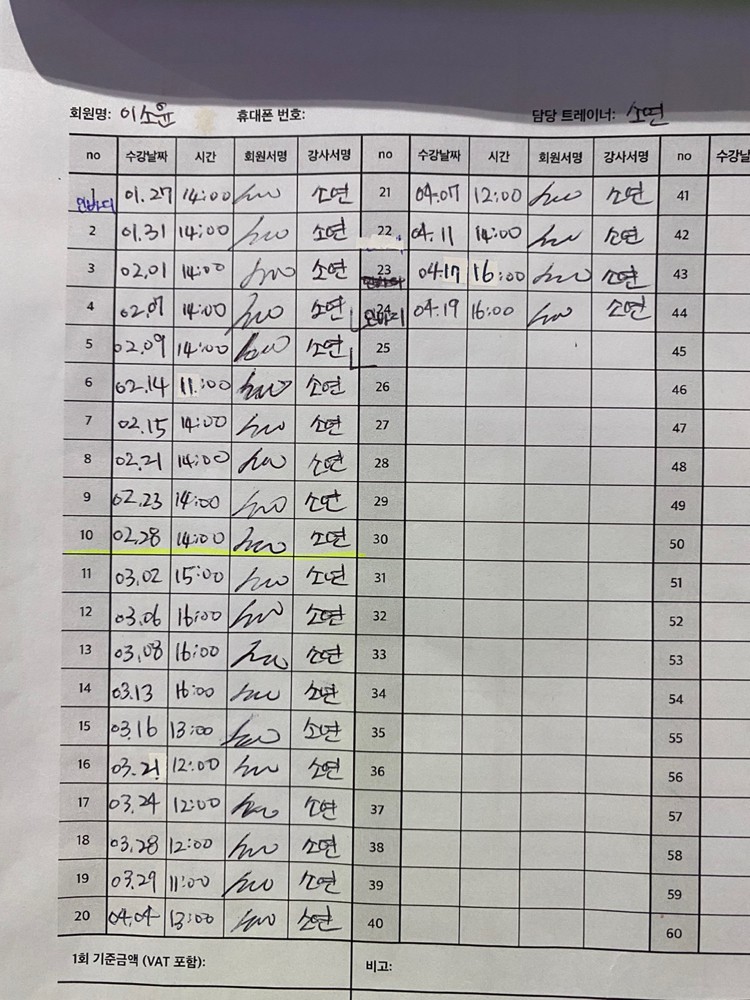 회원명: 이소윤 휴대폰 번호: 담당 트레이너: 소연
no 수강날짜 시간 회원서명 강사서명 no 수강날짜 시간 회원서명 강사서명 no 수강날
1 인바디 01.27 14:00 소연 21 04.07 12:00 소연 41
2 01.31 14:00 소연 22 04.11 14:00 소연 42
3 02.01 14:00 소연 23 04.17 16:00 소연 43
4 02.07 14:00 소연 인바디 04.19 16:00 소연 44
5 02.09 14:00 소연 25 45
6 02.14 11:00 소연 26 46
7 02.15 14:00 소연 27 47
8 02.21 14:00 소연 28 48
9 02.23 14:00 소연 29 49
10 02.28 14:00 소연 30 50
11 03.02 15:00 소연 31 51
12 03.06 16:00 소연 32 52
13 03.08 16:00 소연 33 53
14 03.13 16:00 소연 34 54
15 03.16 13:00 소연 35 55
16 03.21 12:00 소연 36 56
17 03.24 12:00 소연 37 57
18 03.28 12:00 소연 38 58
19 03.29 11:00 소연 39 59
20 04.04 13:00 소연 40 60
1회 기준금액 (VAT 포함): 비고: